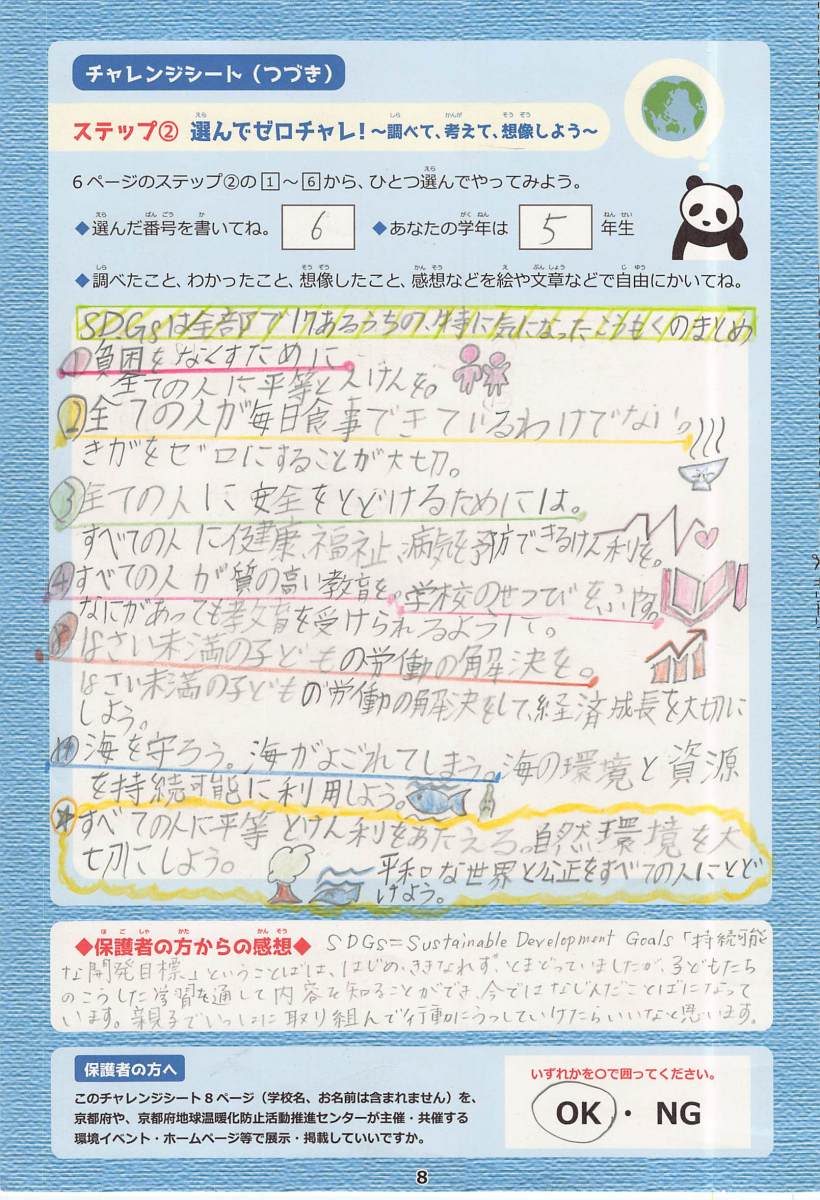 チャレンジシート（つづき）
ステップ② 選んでゼロチャレ！～調べて、考えて、想像しよう～
6ページのステップ②の1～6から、ひとつ選んでやってみよう。
◆選んだ番号を書いてね。 6 ◆あなたの学年は 5 年生
◆調べたこと、わかったこと、想像したこと、感想などを絵や文章などで自由にかいてね。
SDGsは全部で17あるうちの、特に気になったこうもくのまとめ
①貧困をなくすために
全ての人に平等とんけんを。
②全ての人が毎日食事できているわけでない。
きがをゼロにすることが大切。
③全ての人に安全をとどけるためには。
すべての人に健康、福祉、病気を予防できるけん利を。
④すべての人が質の高い教育を。学校のせつびをふやす。
なにがあっても教育を受けられるようにて。
⑧はさい未満の子どもの労働の解決を。
はさい未満の子どもの労働の解決をして、経済成長を大切に
しよう。
⑭海を守ろう。海がよごれてしまう。海の環境と資源
を持続可能に利用しよう。
すべての人に平等とけん利をあたえる。自然環境を大
切にしよう。
平和な世界と公正をすべての人にとど
けよう。
◆保護者の方からの感想◆ SDGs=Sustainable Development Goals「持続可能
な開発目標」ということばは、はじめ、ききなれず、とまどっていましたが、子どもたち
のこうした学習を通して内容を知ることができ、今ではなじんだことばになって
います。親子でいっしょに取り組んで行動にうつしていけたらいいなと思います。
保護者の方へ
このチャレンジシート8ページ（学校名、お名前は含まれません）を、
京都府や、京都府地球温暖化防止活動推進センターが主催・共催する
環境イベント・ホームページ等で展示・掲載していいですか。
いずれかを○で囲ってください。
OK ・ NG
8